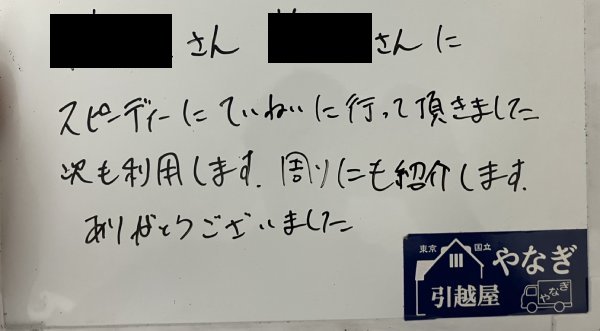 さん さんに
スピーディーにていねいに行って頂きました
次も利用します. 周りにも紹介します.
ありがとうございました
東京 国立 やなぎ
引越屋 やなぎ